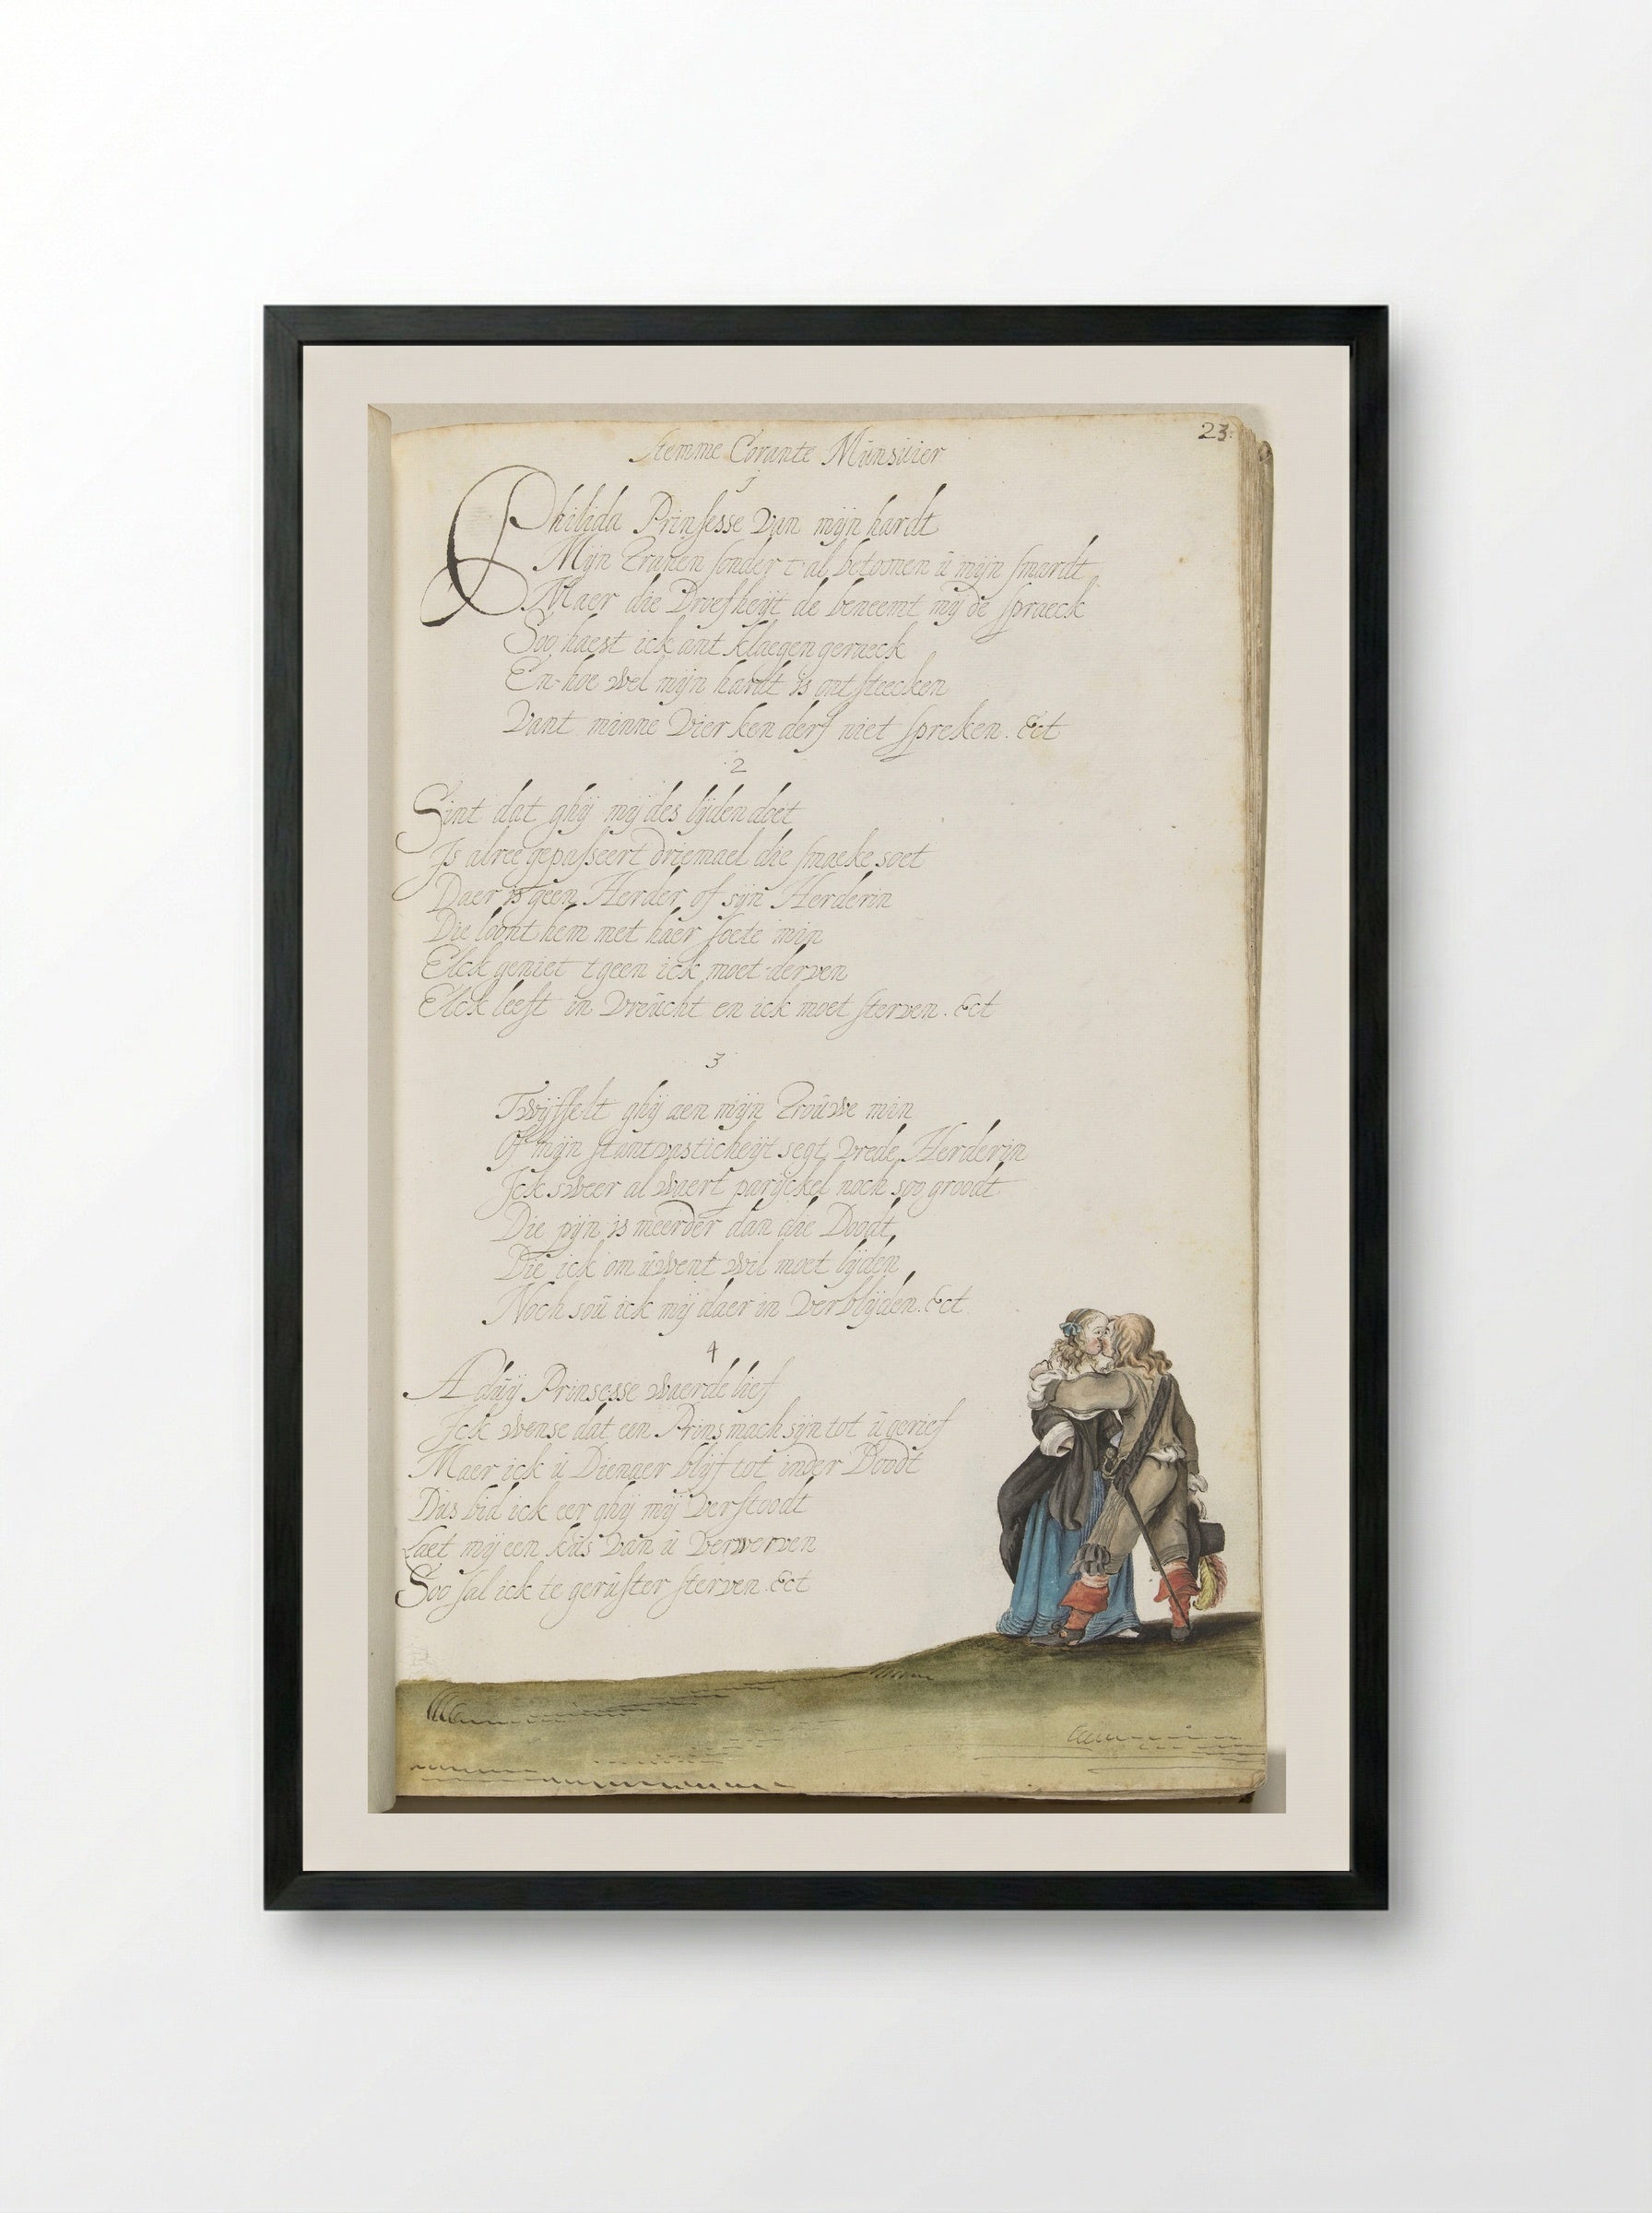 23.
Stemme Corante Munsuier
1
Philida Prinsesse van mijn hardt
Mijn Tranen sonder t al betoonen ū mijn smardt
Maer die Droefheijt de beneemt mij de spraeck
Soo haest ick ant klaegen geraeck
En hoe wel mijn hardt is ontsteecken
Vant minne Vier ken derf niet spreken. &ct
2
Sint dat ghij mij des lijden doet
Is alree gepasseert driemael die smaeke soet
Daer is geen Herder of sijn Herderin
Die loont hem met haer soete min
Elck geniet t geen ick moet derven
Elck leeft in Vreūcht en ick moet sterven. &ct
3
Twijffelt ghij aen mijn Troūwe min
Of mijn stantvasticheijt segt Vrede Herderin
Ick sweer al waert parijckel noch soo groodt
Die pijn is meerder dan die Doodt
Die ick om ūwent wil moet lijden
Noch soū ick mij daer in Verblijden. &ct
4
Adūij Prinsesse waerde lief
Ick wense dat een Prins mach sijn tot ū gerief
Maer ick ū Dienaer blijf tot inder Doodt
Dūs bid ick eer ghij mij Verstoodt
Laet mij een kūs Van ū Verwerven
Soo sal ick te gerūster sterven. &ct